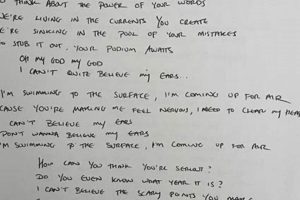 THINK ABOUT THE POWER OF YOUR WORDS
WE'RE LIVING IN THE CURRENTS YOU CREATE
WE'RE SINKING IN THE POOL OF YOUR MISTAKES
STUB IT OUT, YOUR PODIUM AWAITS
OH MY GOD MY GOD
I CAN'T QUITE BELIEVE MY EARS...
I'M SWIMMING TO THE SURFACE, I'M COMING UP FOR AIR
CAUSE YOU'RE MAKING ME FEEL NERVOUS, I NEED TO CLEAR MY HEAD
CAN'T BELIEVE MY EARS
DON'T WANNA BELIEVE MY EARS
I'M SWIMMING TO THE SURFACE, I'M COMING UP FOR AIR
HOW CAN YOU THINK YOU'RE SERIOUS?
DO YOU EVEN KNOW WHAT YEAR IT IS?
I CAN'T BELIEVE THE SCARY POINTS YOU MAKE